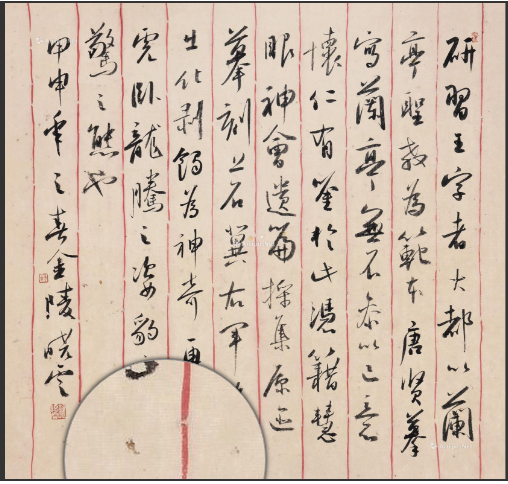 研習王字者大都以蘭
亭聖教為範本唐賢摹
寫蘭亭無不參以己意
懷仁有鑒於此憑藉慧
眼神會遺篇採集原迹
摹刻上石冀右軍
化剥蝕為神奇再
虎臥龍騰之姿豹
驚之態也
甲申年之春金陵雲